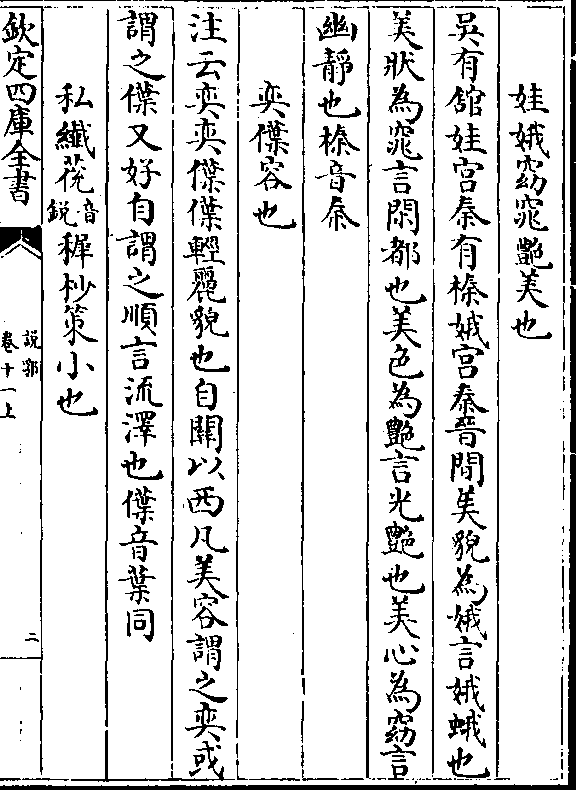 娃娥窈窕艶美也
吳有館娃宫秦有㮈娥宫秦晉間美貌為娥言娥娥也
美狀為窕言閑都也美色為艶言光艶也美心為窈言
幽靜也㮈音柰
奕僷容也
注云奕奕僷僷輕麗貌也自關以西凡美容謂之奕或
謂之僷又好自謂之順言流澤也僷音葉同
私纎茷音鋭稺杪策小也
欽定四庫全書
説郛
卷十一上
二